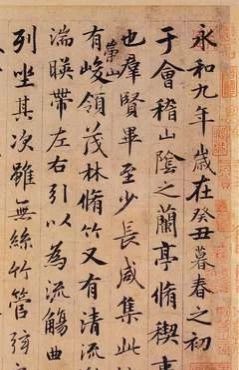 永和九年歲在癸丑暮春之初
于會稽山陰之蘭亭脩禊事
也羣賢畢至少長咸集此地
有崇山峻領茂林脩竹又有清流
湍暎帶左右引以為流觴曲
列坐其次雖無絲竹管弦